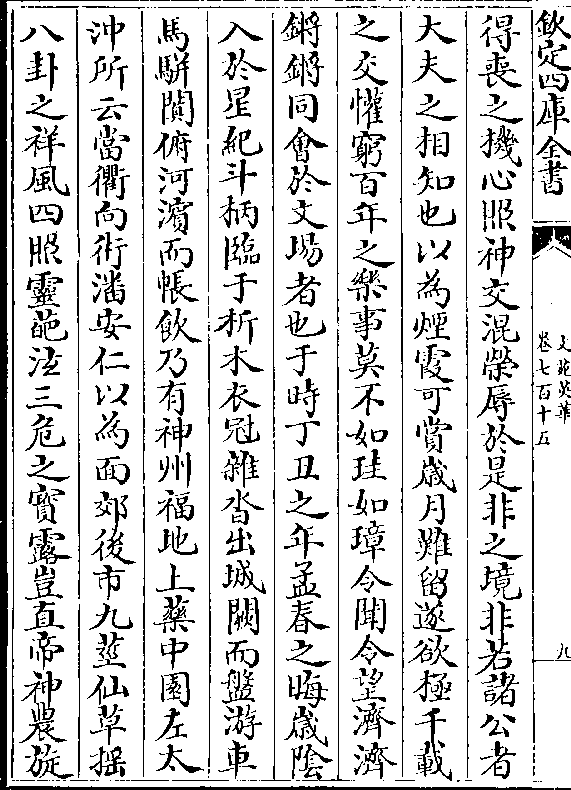 欽定四庫全書
文苑英華
卷七百十五
九
得喪之機心照神交混榮辱於是非之境非若諸公者
大夫之相知也以為煙霞可賞歲月難留遂欲極千載
之交懽窮百年之樂事莫不如珪如璋令聞令望濟濟
鏘鏘同會於文場者也于時丁丑之年孟春之晦歲陰
入於星紀斗柄臨于析木衣冠雜沓出城闕而盤游車
馬駢闐俯河濵而帳飲乃有神州福地上藥中園左太
沖所云當衢向術潘安仁以為面郊後市九莖仙草揺
八卦之祥風四照靈葩泫三危之寳露豈直帝神農旋